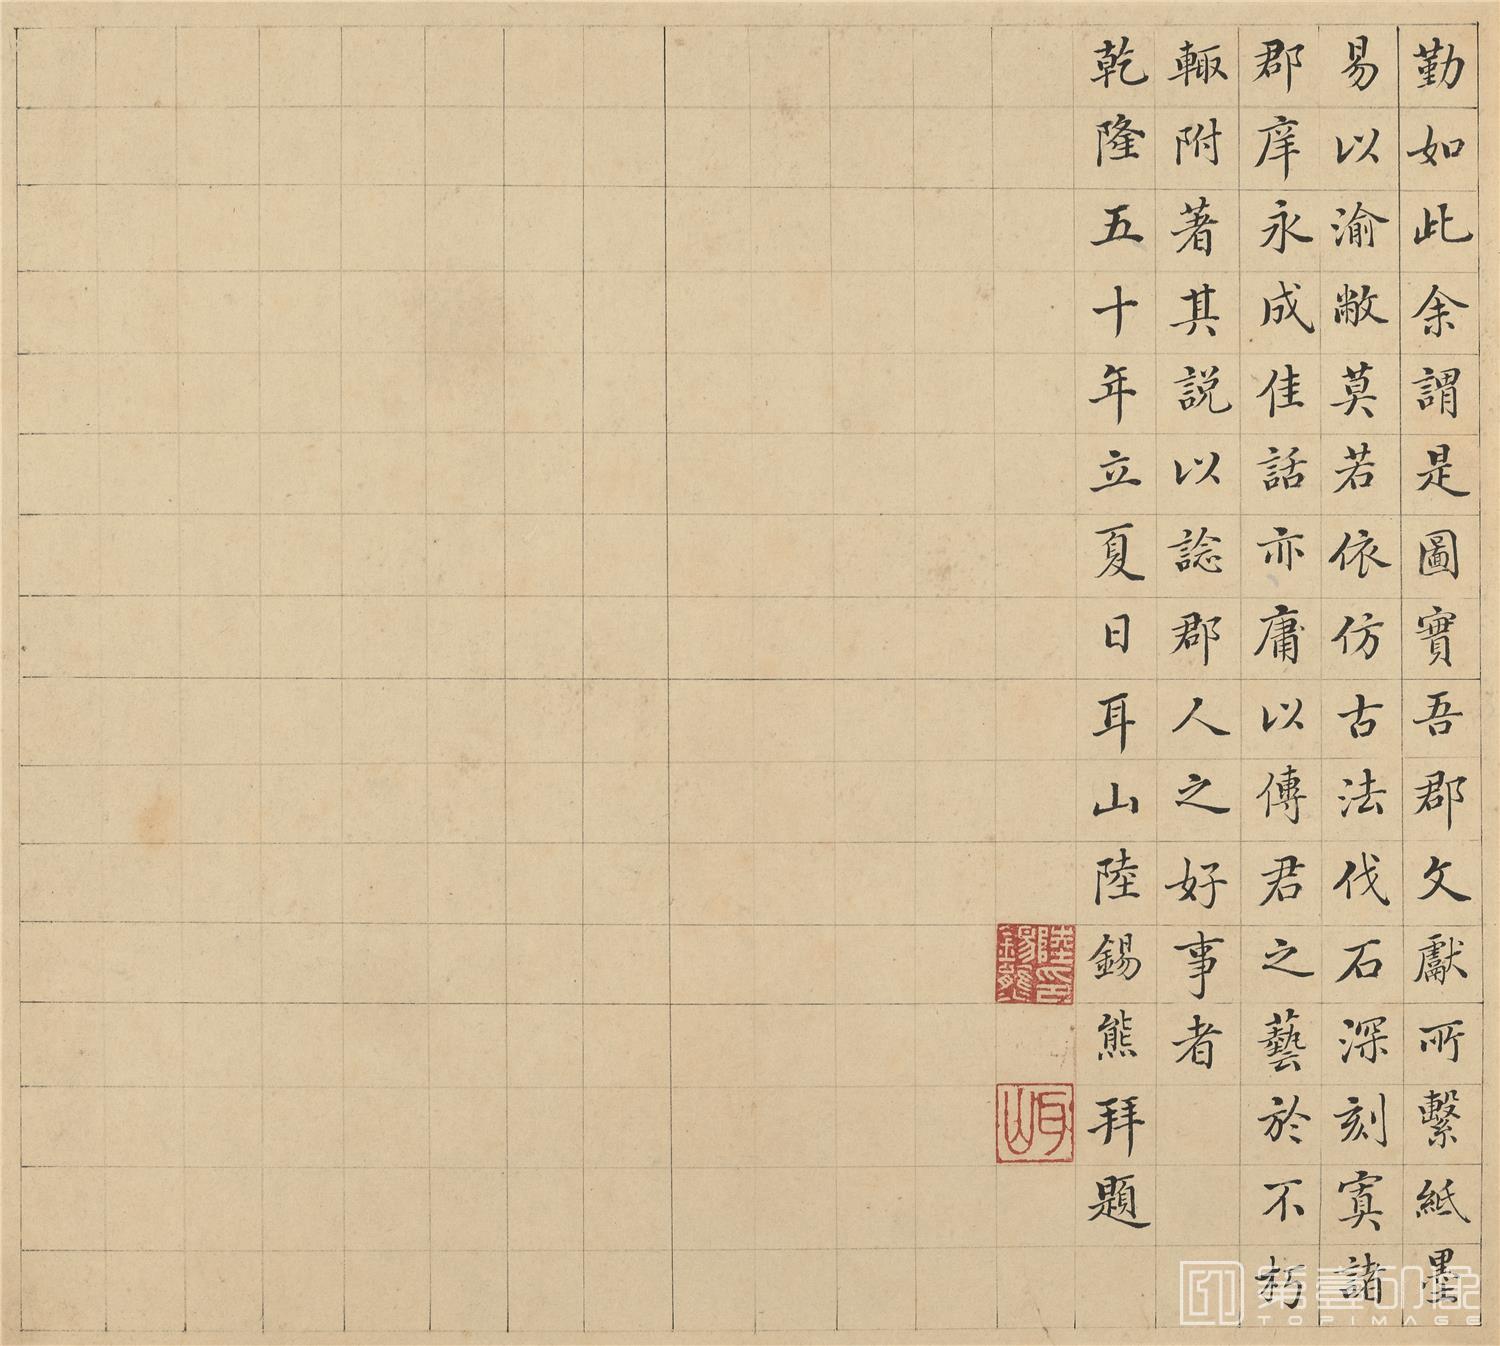 勤如此余謂是圖實吾郡文獻所繫紙墨
易以渝敝莫若依仿古法伐石深刻寘諸
郡庠永成佳話亦庸以傳君之藝於不朽
輙附著其說以諗郡人之好事者
乾隆五十年立夏日耳山陸錫熊拜題
陸錫熊印
耳山
第壹印象
TOPIMAGE